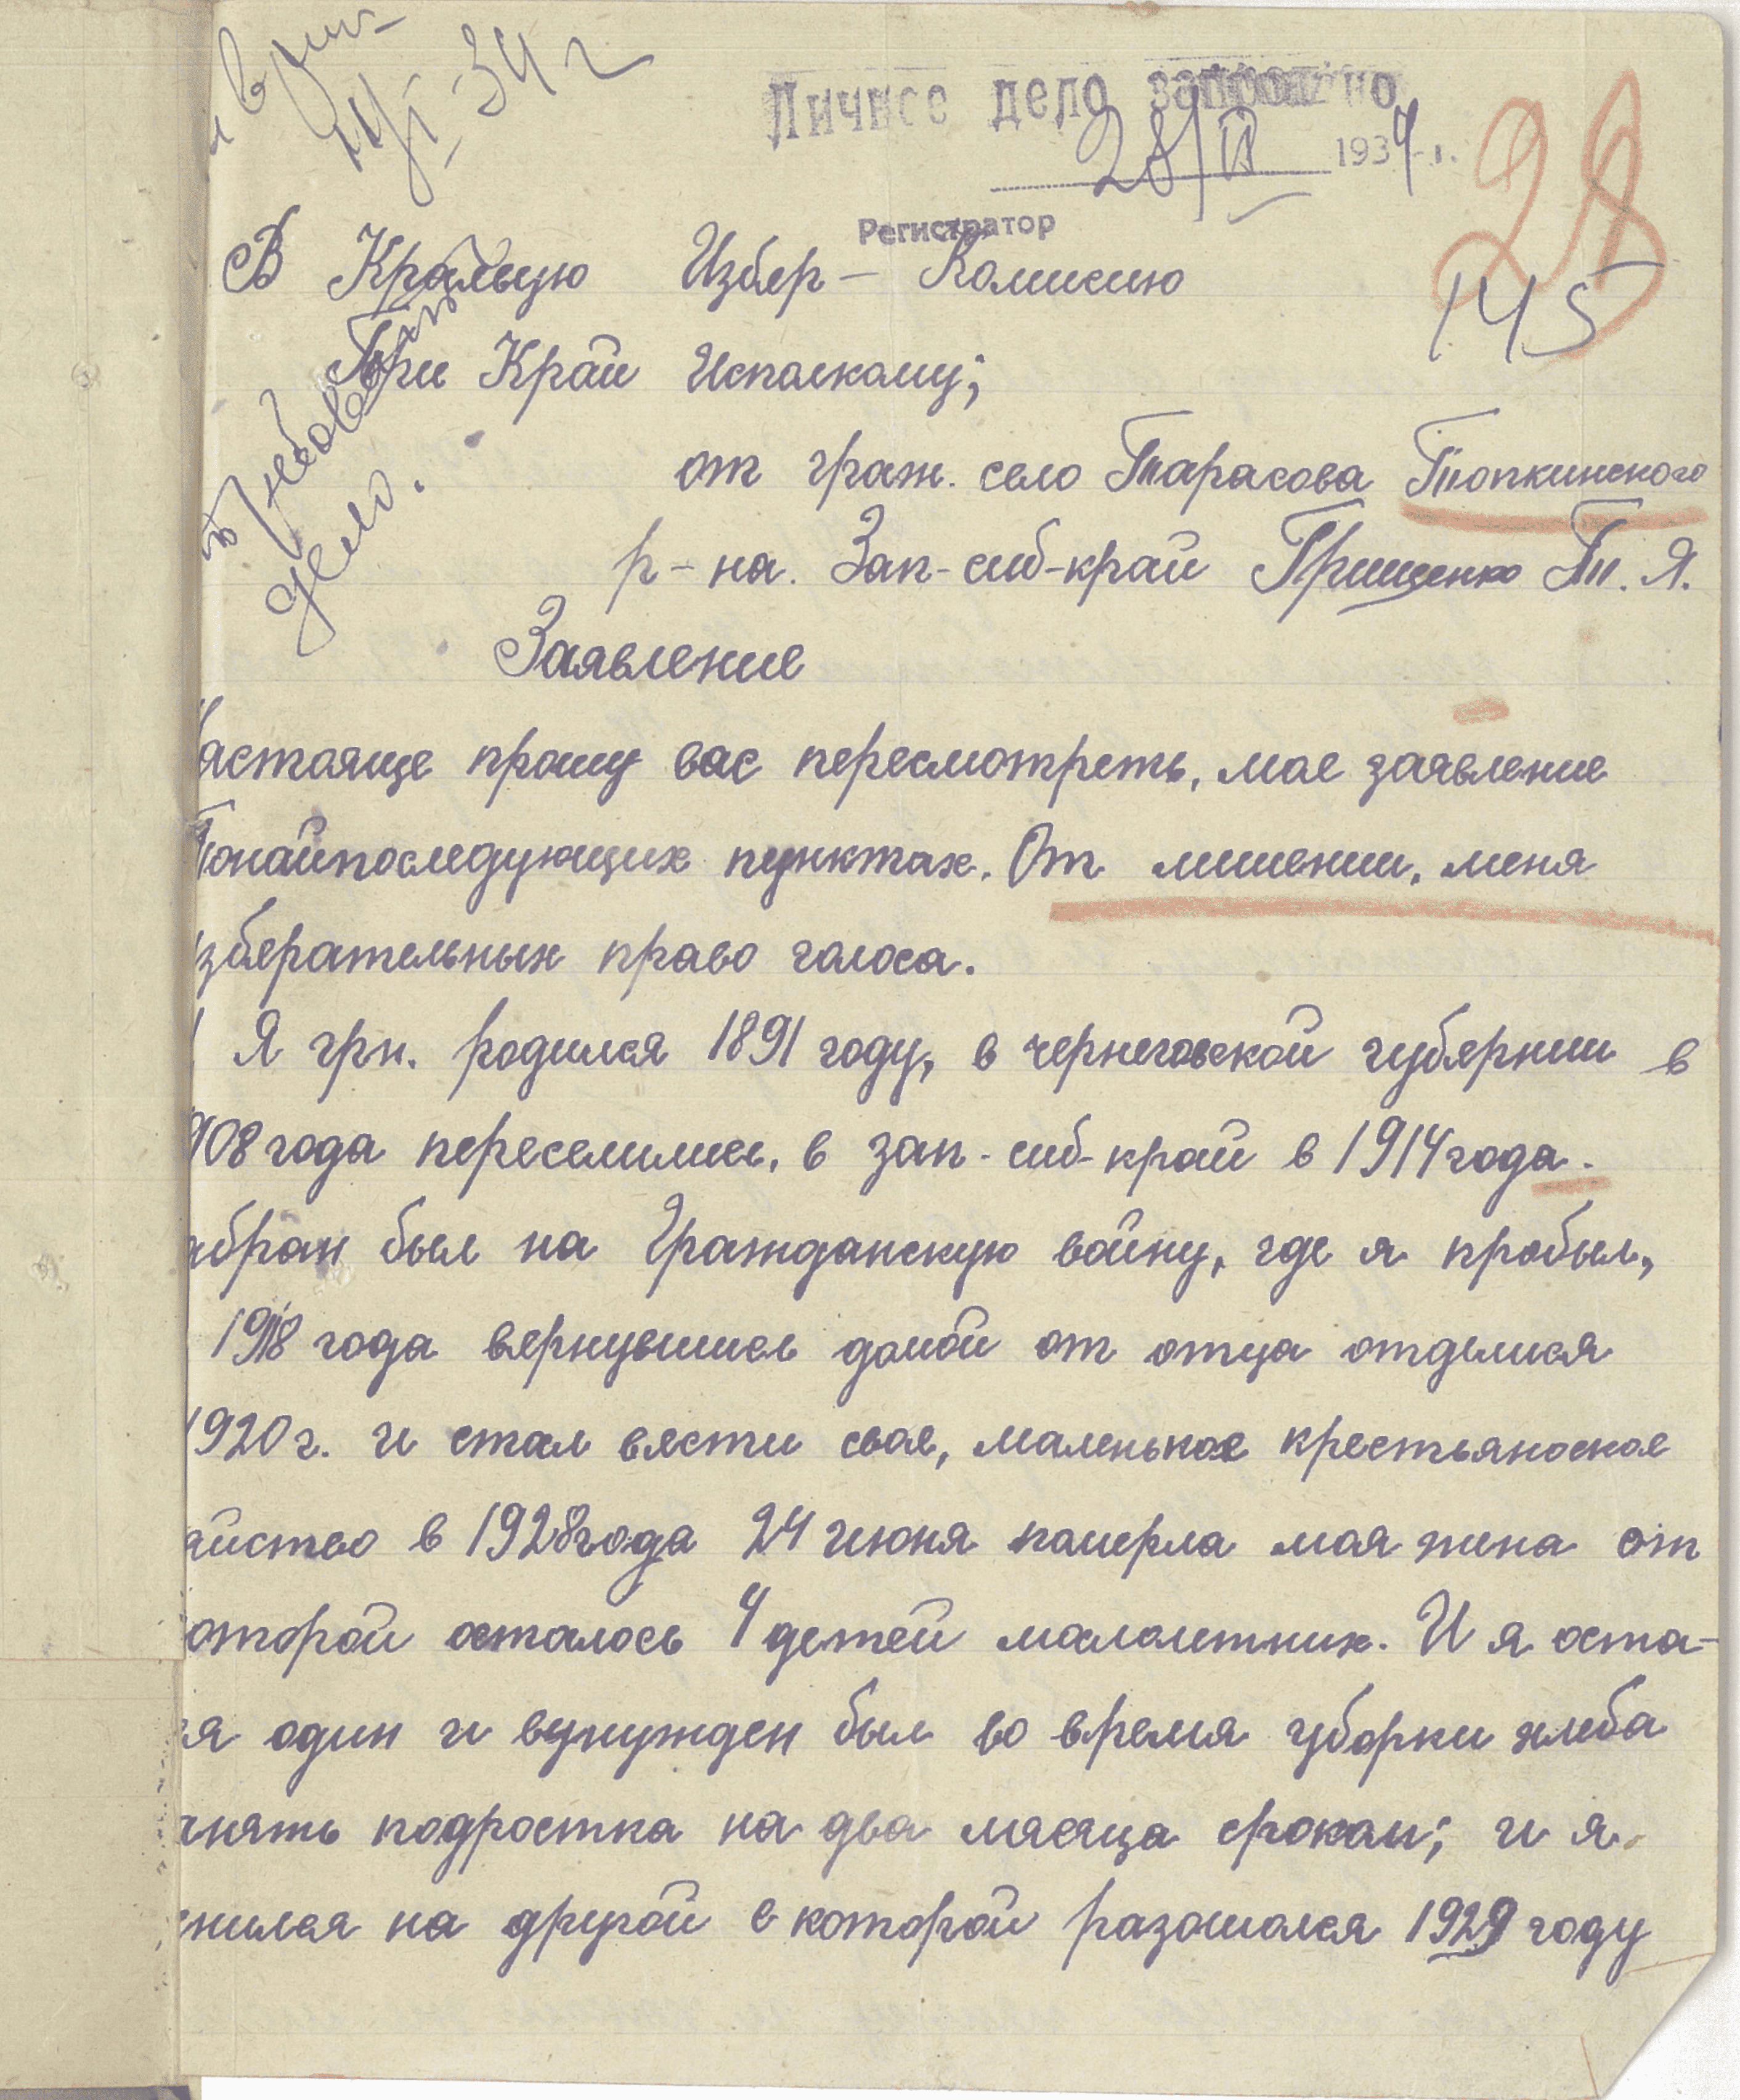 34 г
Личное дело запрошено
28/II 1934 г.
Регистратор
28
145
В Краевую Избер- Комисию
При Край Исполкому;
от граж. село Тарасова Топкинского
р-на. Зап-сиб-край Грищенко Т. Я.
дело.
Заявление
астояще прошу вас пересмотреть, мае заявление
Понайпоследующих пунктах. От лишении, меня
збератeльных право голоса.
Я грн. родился 1891 году, в чернеговской губернии в
908 года переселились, в зап-сиб-край в 1914 года.
абран был на Гражданскую войну, где я пробыл,
1918 года вернувшись домой от отца отделися
1920 г. и стал вести свае, маленькое крестьяноское
яйство в 1928 года 24 июня померла моя жена от
оторой осталось 4 детей малолетних. И я оста-
я один и вунужден был во время уборки хлеба
анять подростка на два месяца сроком; и я
нился на другой с которой разошолся 1929 году